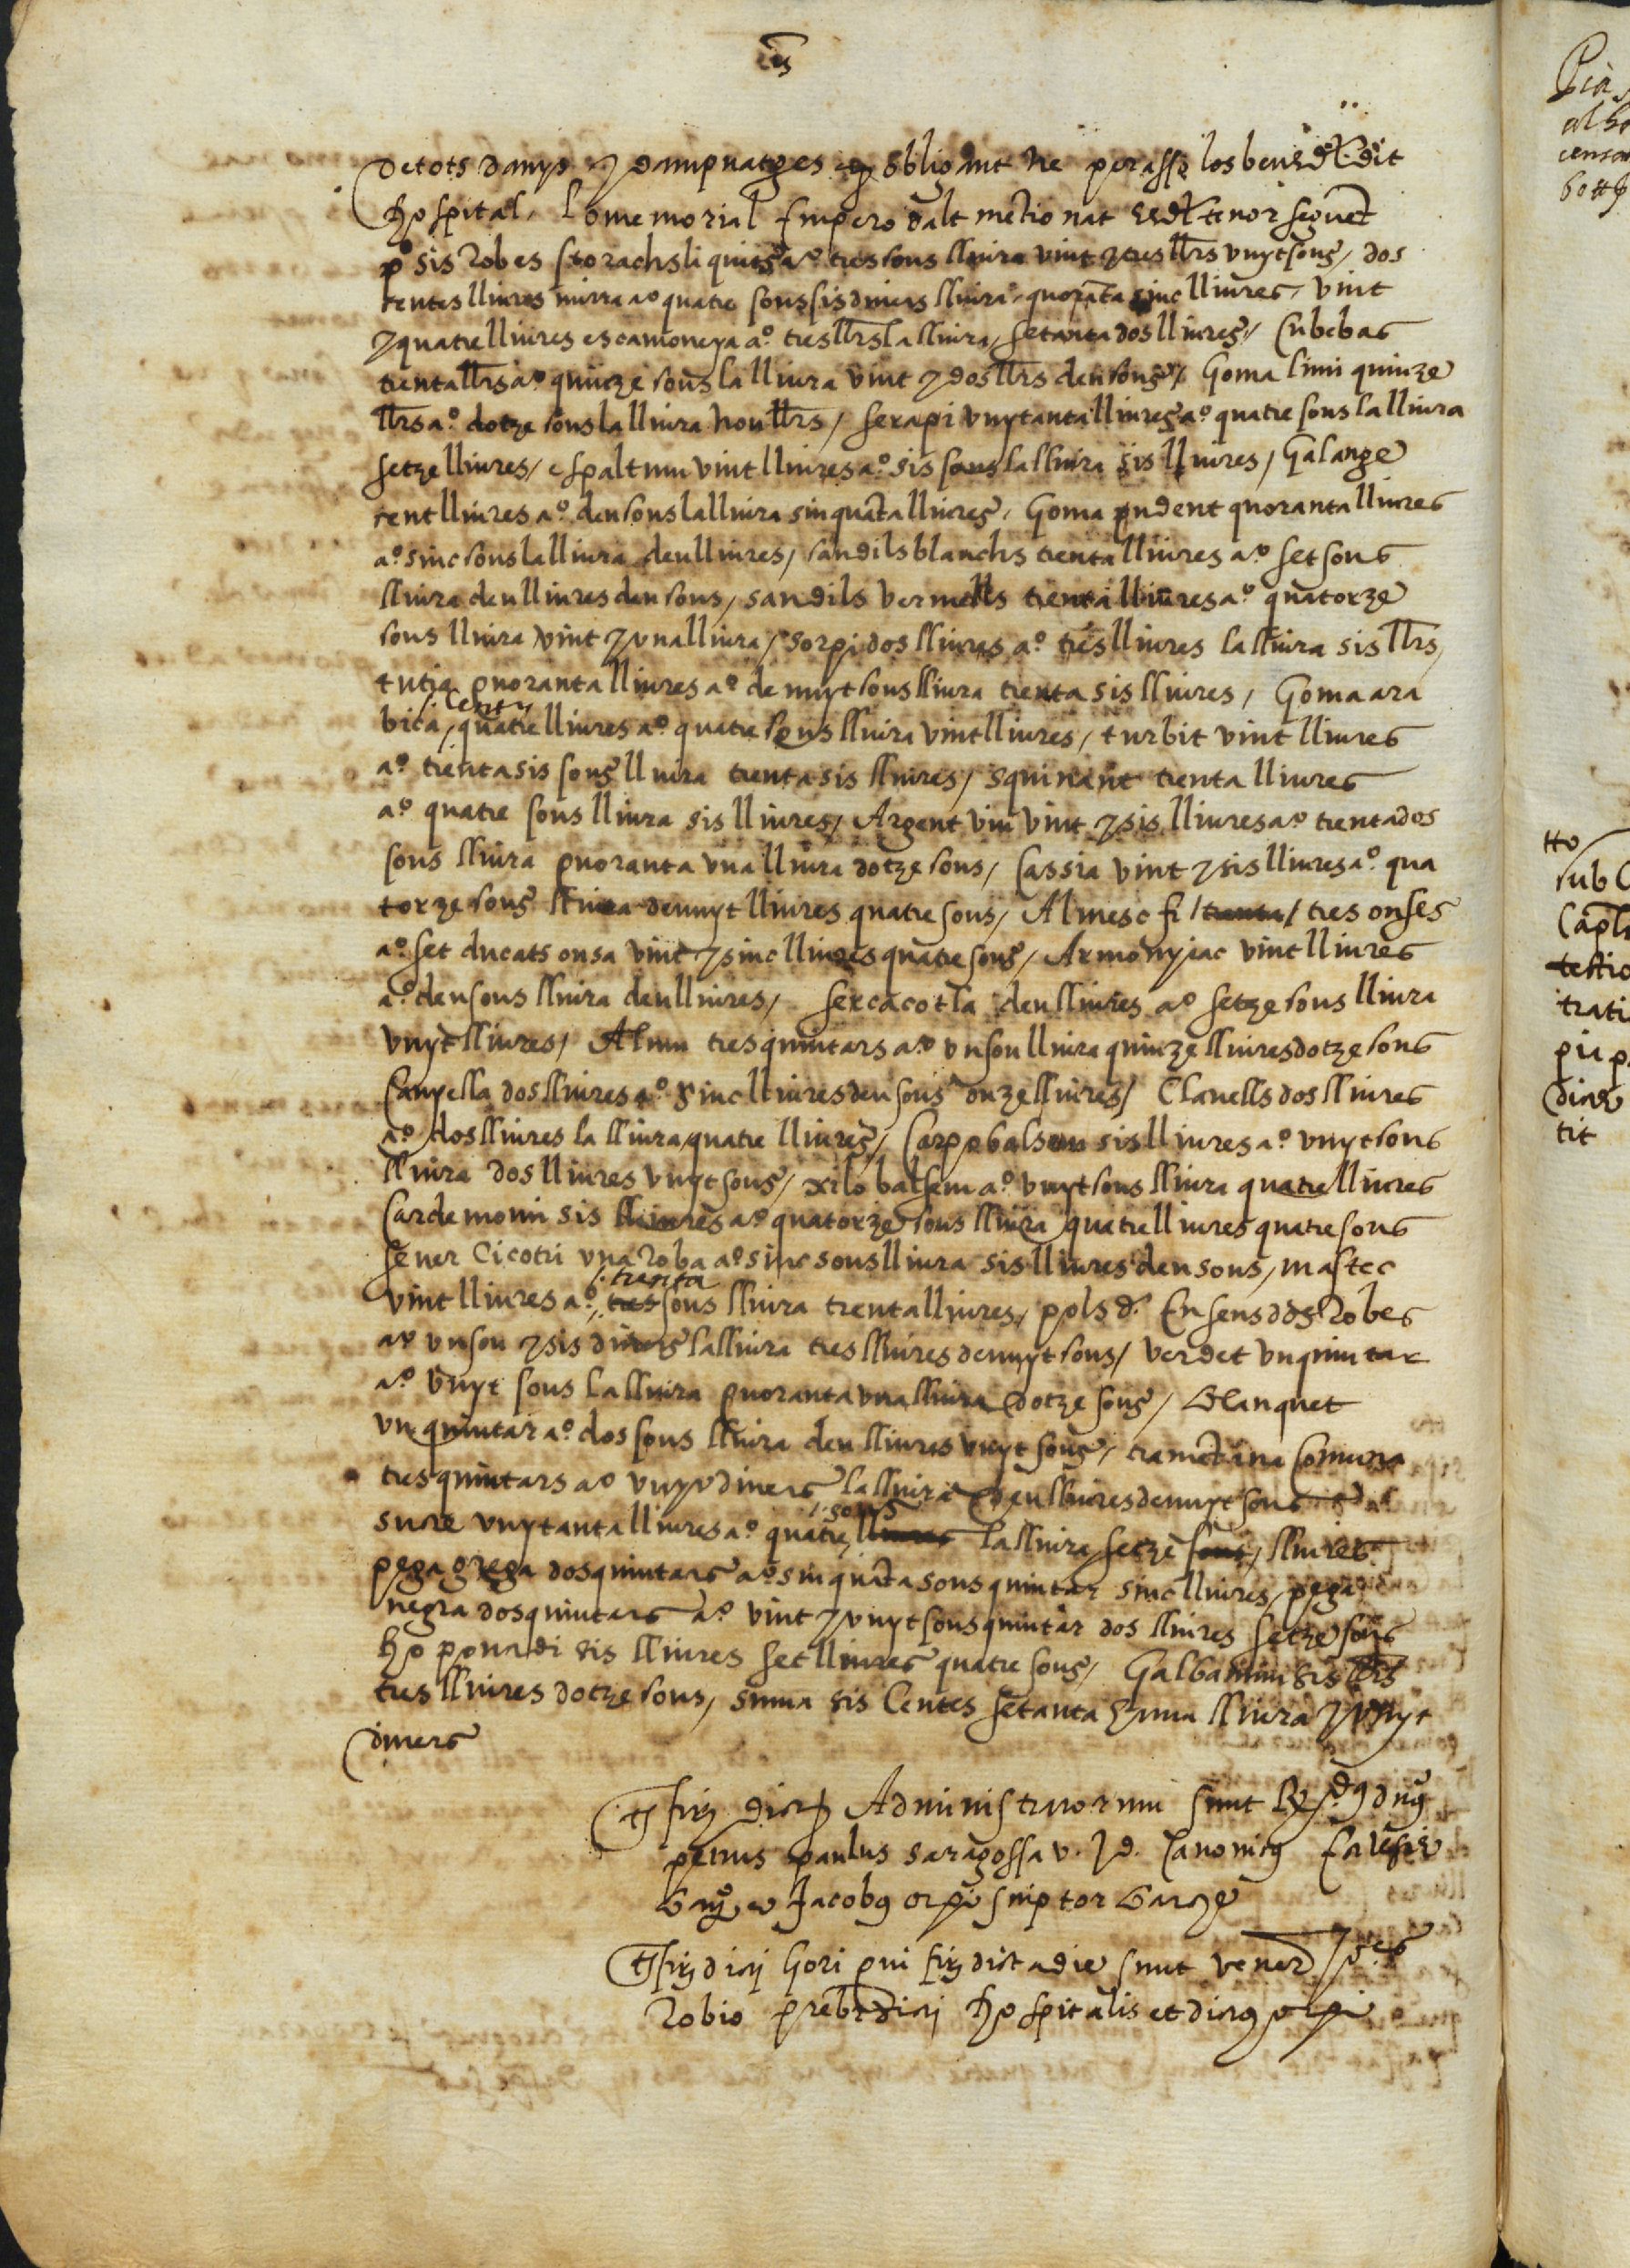 Jhs
de tots danys y dampnatges obligant ne per asso los bens dl dit
Hospital, Lo memorial Empero dalt mētionat es dl tenor seguēt
p.º sis Robes storachs liquits a.º tres sous lliura vint y tres llrs vuyt sous, dos
centes lliures mirra a.º quatre sous sis diners lliura, quorāta sinc lliures, vint
y quatre lliures escamoneya a.º tres llrs la lliura, setanta dos lliures, Cubebas
trenta llrs a.º quinze sous la lliura vint y dos llrs deu sous, Goma limi quinze
llrs a.º dotze sous la lliura nou llrs, serapi vuytanta lliures a.º quatre sous la lliura
setze lliures, espaltum vint lliures a.º sis sous la lliura sis lliures, Galange
cent lliures a.º deu sous la lliura sinquāta lliures, Goma pudent quoranta lliures
a.º sinc sous la lliura deu lliures, sandils blanchs trenta lliures a.º set sous
lliura deu lliures deu sous, sandils vermells trenta lliures a.º quatorze
sous lliura vint y una lliura, sorpi dos lliures a.º tres lliures la lliura sis llrs,
tutia quoranta lliures a.º denuyt sous lliura trenta sis lliures, Goma ara
bica, cent y quatre lliures a.º quatre sous lliura vint lliures, turbit vint lliures
a.º trenta sis sous lliura trenta sis lliures, squinant trenta lliures
a.º quatre sous lliura sis lliures, Argent viu vint y sis lliures a.º trenta dos
sous lliura quoranta una lliura dotze sous, Cassia vint y sis lliures a.º qua
torze sous lliura denuyt lliures quatre sous, Almesc fi /trenta/ tres onses
a.º set ducats onsa vint y sinc lliures quatre sous, Armonyiac vint lliures
a.º deu sous lliura deu lliures, sercacotla deu lliures a.º setze sous lliura
vuyt lliures, Alum tres quintars a.º un sou lliura quinze lliures dotze sous
Canyella dos lliures a.º sinc lliures deu sous onze lliures, Clauells dos lliures
a.º dos lliures la lliura, quatre lliures, Carpobalsem sis lliures a.º vuyt sous
lliura dos lliures vuyt sous, xilobalsem a.º vuyt sous lliura quatre lliures
Cardemomi sis lliures a.º quatorze sous lliura quatre lliures quatre sous
sever Cicotri una Roba a.º sinc sous lliura sis lliures deu sous, mastec
vint lliures a.º tres trenta sous lliura trenta lliures, pols d. Ensens dos Robes
a.º un sou y sis diners la lliura tres lliures denuyt sous, verdet un quintar
a.º vuyt sous la lliura quoranta una lliura dotze sous, Blanquet
un quintar a.º dos sous lliura deu lliures vuyt sous, tramētina Comuna
tres quintars a.º vuyt diners la lliura deu lliures denuyt sous
sucre vuytanta lliures a.º quatre lliures sous la lliura setze sous, lliures
pega grega dos quintars a.º sinquāta sous quintar sinc lliures, pega
negra dos quintars a.º vint y vuyt sous quintar dos lliures setze sous
Hoponadi sis lliures set lliures quatre sous, Galbanum sis llrs
tres lliures dotze sous, suma sis Centes setanta huna lliura y vuyt
diners
Ts fir dictor Administratorum sunt
petrus paulus saragossa v. J. d. Canonicus
Jacobus scriptor
Ts fir dicti Gori qui fir dicta die sunt
Robio dicti Hospitalis et dictus